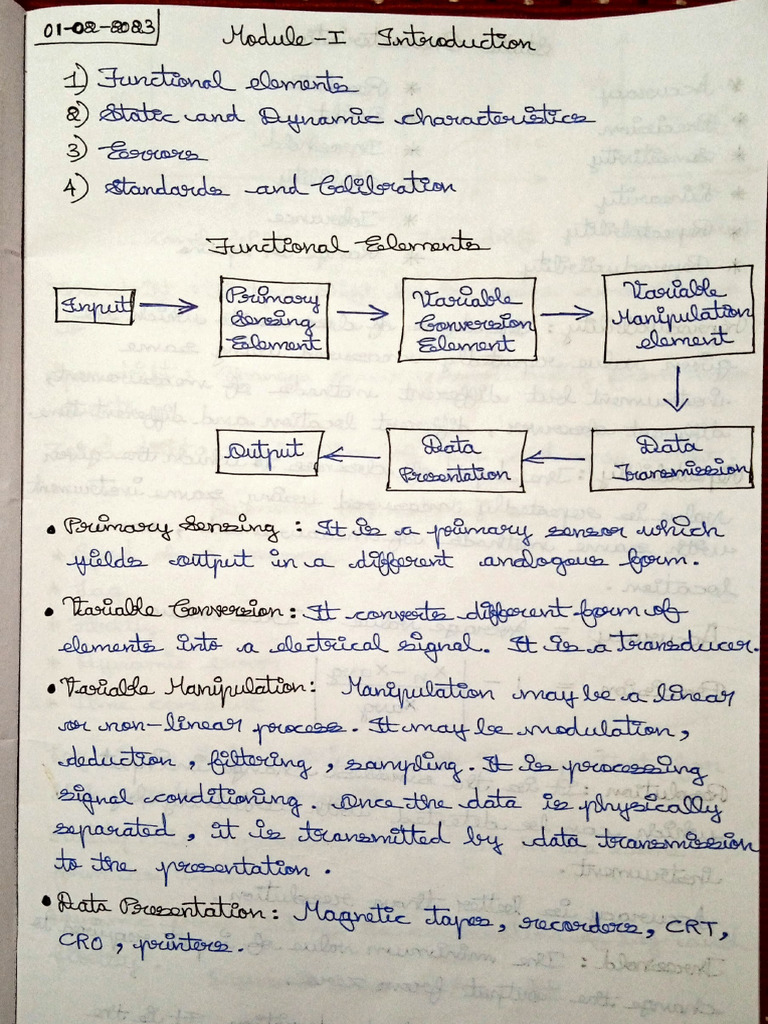 01-02-2023
Module-I Introduction
1) Functional elements
2) Static and Dynamic characteristics
3) Errors
4) Standards and Calibration
Functional Elements
Input
Primary
Sensing
Element
Variable
Conversion
Element
Variable
Manipulation
element
Output
Data
Presentation
Data
Transmission
• Primary Sensing : It is a primary sensor which
yields output in a different analogous form.
• Variable Conversion : It converts different form of
elements into a electrical signal. It is a transducer.
• Variable Manipulation : Manipulation may be a linear
or non-linear process. It may be modulation,
deduction, filtering, sampling. It is processing
signal conditioning. Once the data is physically
separated, it is transmitted by data transmission
to the presentation.
• Data Presentation : Magnetic tapes, recorders, CRT,
CRO, printers.